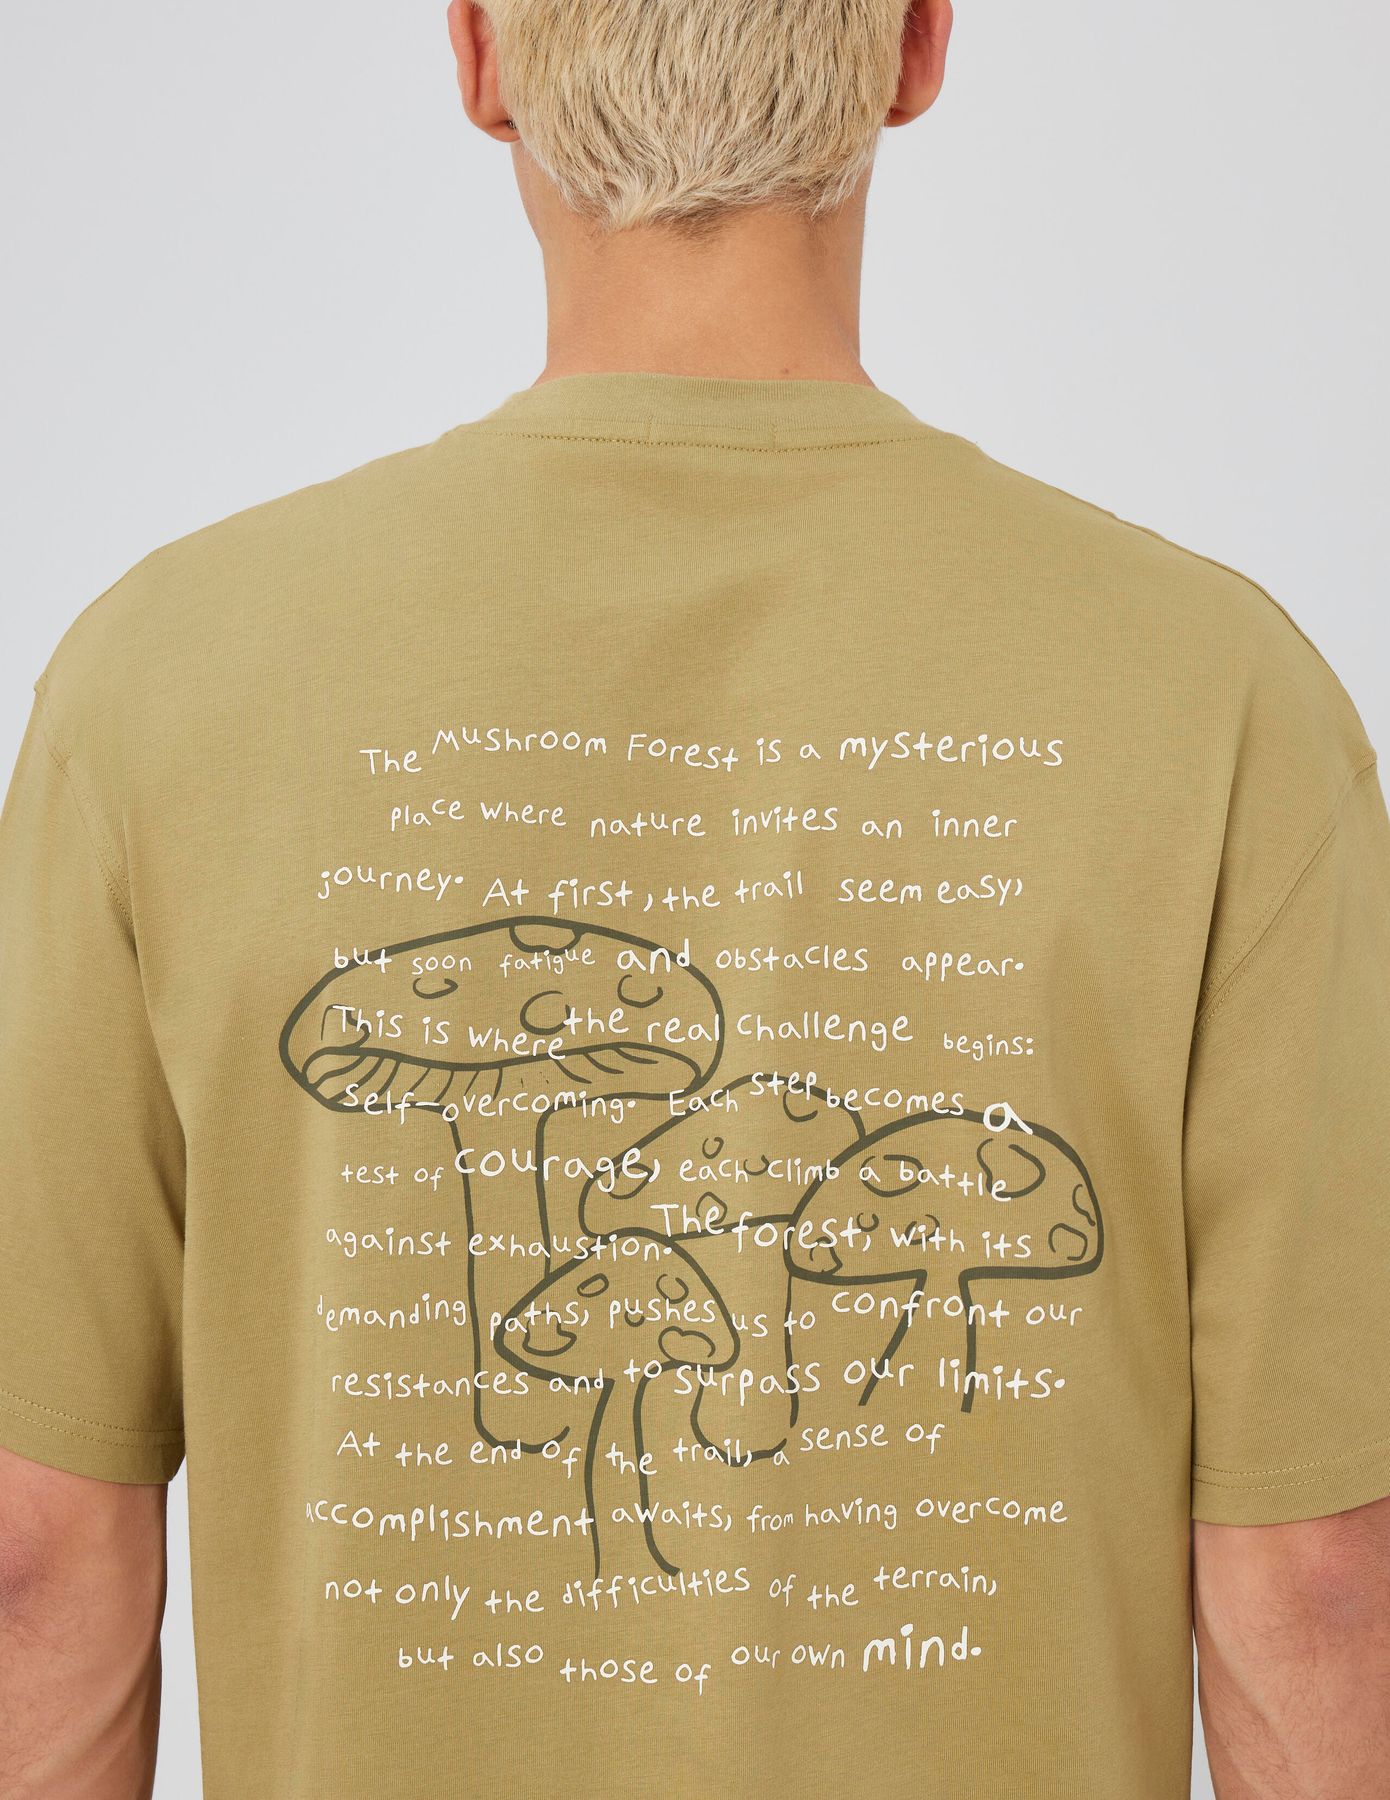 The Mushroom Forest is a mysterious
place where nature invites an inner
journey. At first, the trail seem easy,
but soon fatigue and obstacles appear.
This is where the real challenge begins:
Self-overcoming. Each step becomes a
test of courage, each climb a battle
against exhaustion. The forest, with its
demanding paths, pushes us to confront our
resistances and to surpass our limits.
At the end of the trail, a sense of
accomplishment awaits, from having overcome
not only the difficulties of the terrain,
but also those of our own mind.